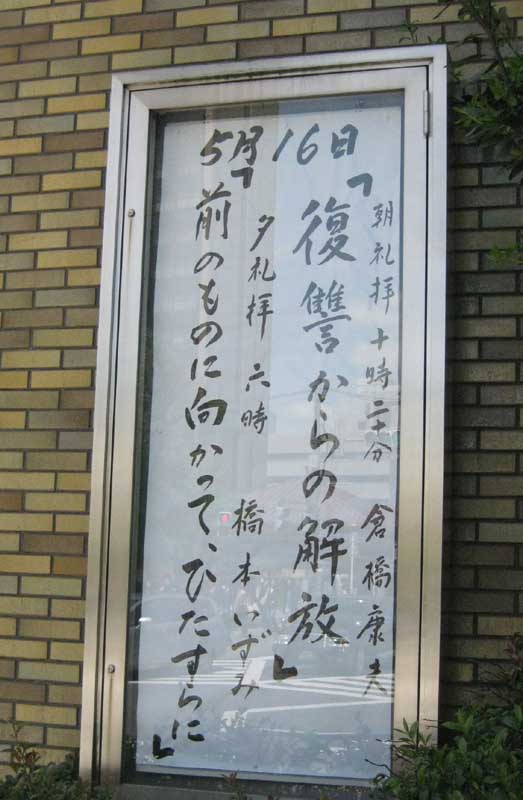 5月16日
朝礼拝十時二十分 倉橋康夫
「復讐からの解放」
夕礼拝 六時 橋本いずみ
「前のものに向かって、ひたすらに」